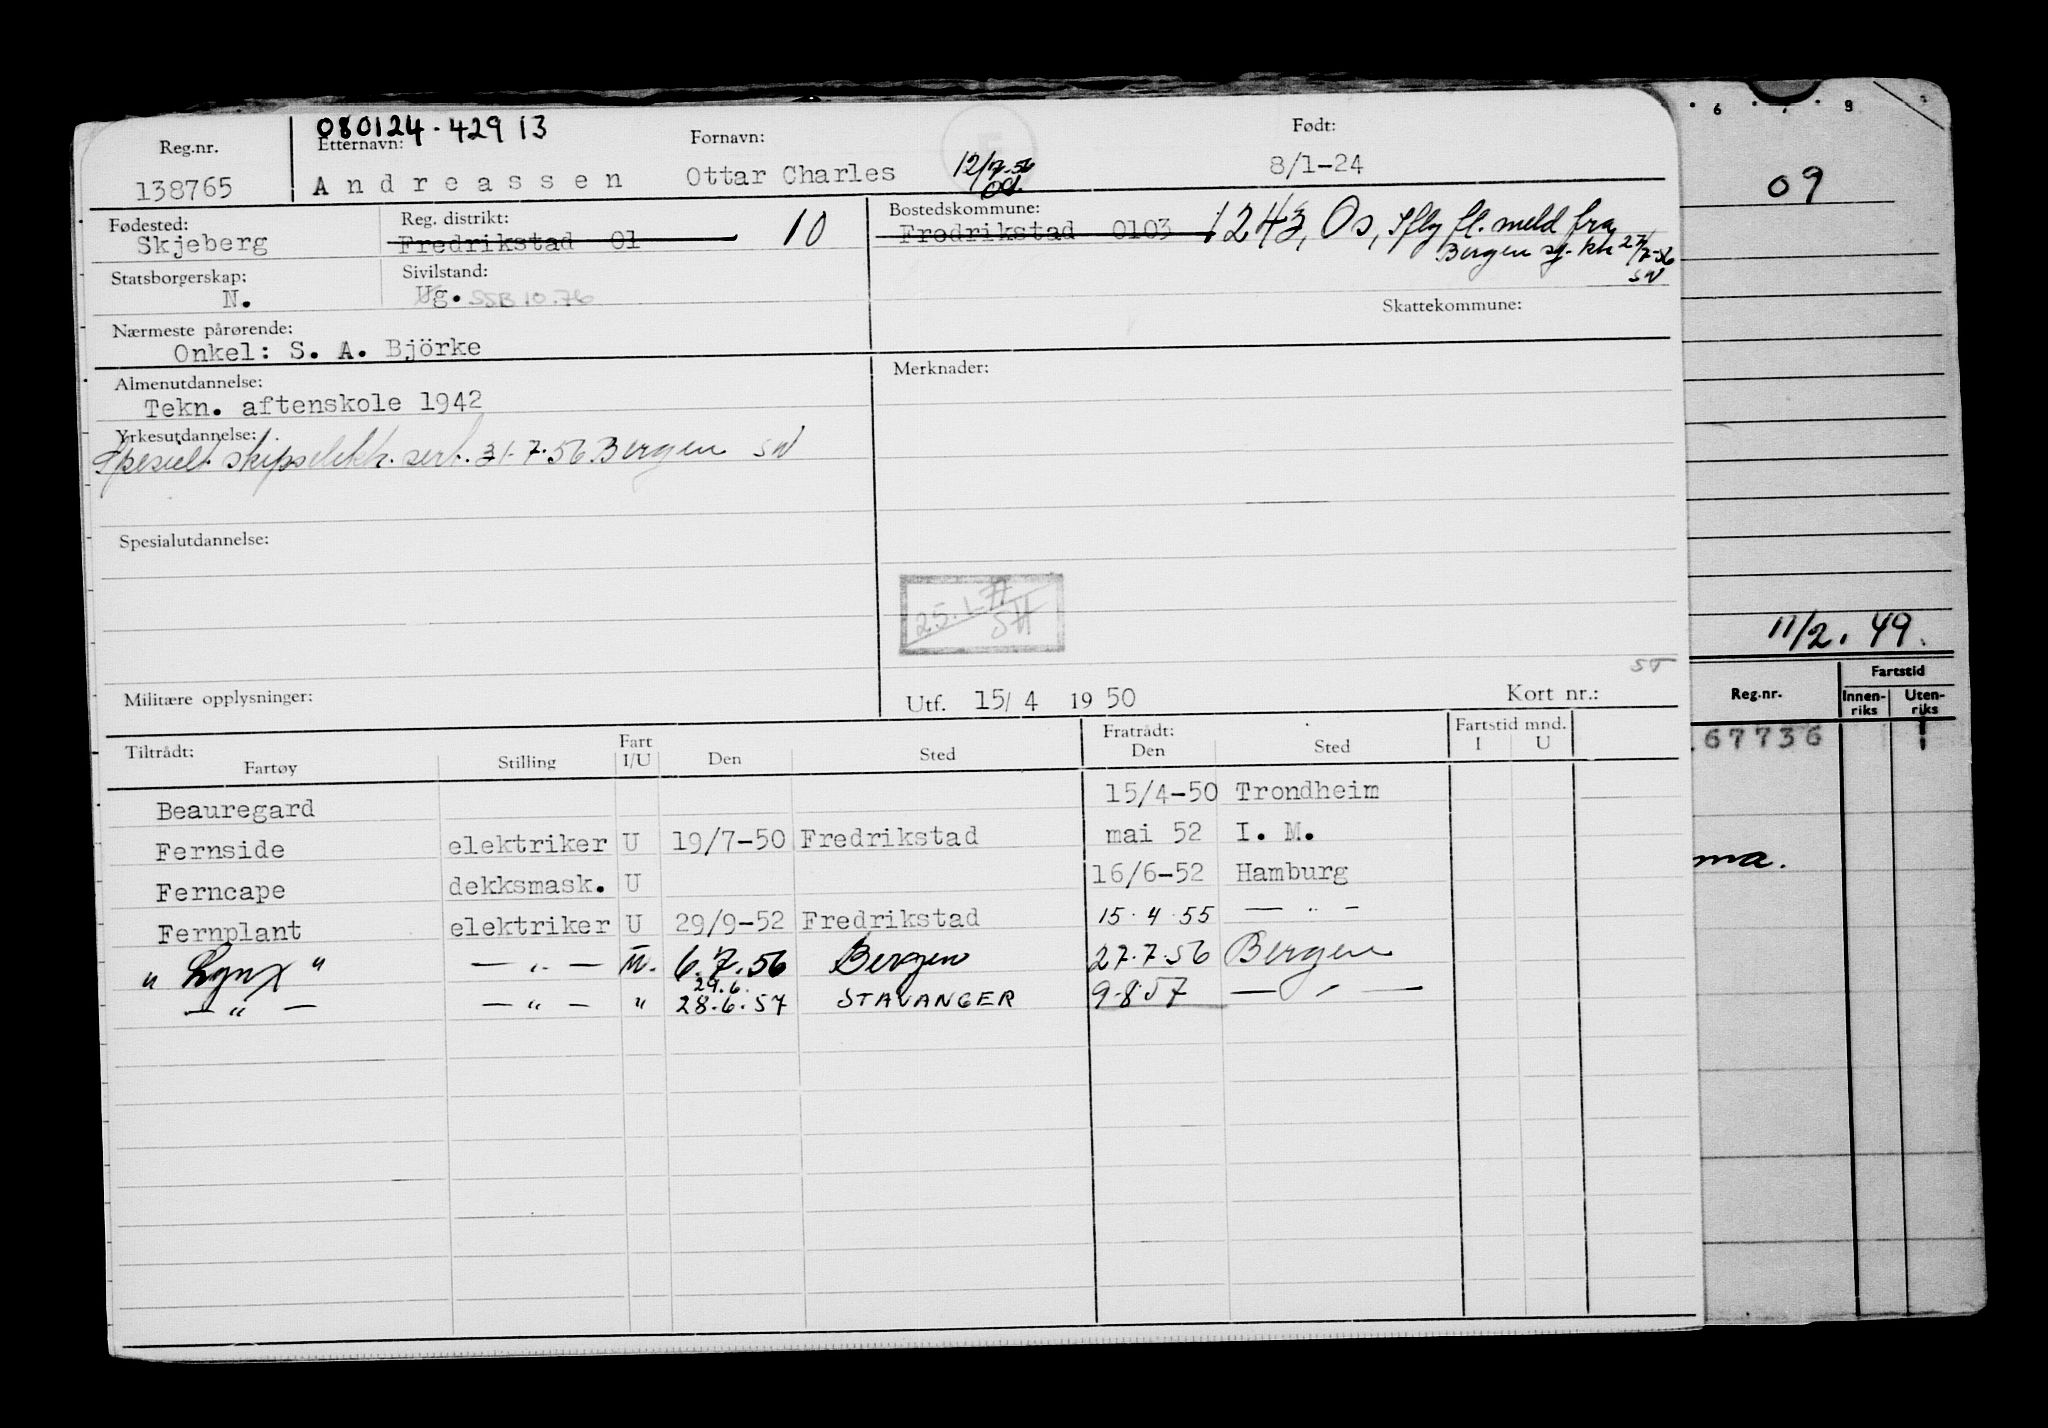 080124-42913
Reg.nr. Etternavn: Fornavn: Født:
138765 Andreassen Ottar Charles 12/7-56 8/1-24
Fødested: Reg. distrikt: 10 Bostedskommune:
Skjeberg Fredrikstad 01 Fredrikstad 0103 1243, Os, Iflg fl. meld fra
Bergen sj. kk 27/7-56
SW
Statsborgerskap: Sivilstand:
N. Ug. SSB 10.76
Skattekommune:
Nærmeste pårørende:
Onkel: S. A. Björke
Almenutdannelse: Merknader:
Tekn. aftenskole 1942
Yrkesutdannelse:
Spesielt skipselekk. sert. 31.7.56 Bergen SW
Spesialutdannelse:
25.1-77
SH
ST
Militære opplysninger: Utf. 15/4 1950 Kort nr.:
Tiltrådt: Fratrådt: Fartstid mnd.
Fartøy Stilling Fart I/U Den Sted Den Sted I U
Beauregard 15/4-50 Trondheim
Fernside elektriker U 19/7-50 Fredrikstad mai 52 I. M.
Ferncape dekksmask. U 16/6-52 Hamburg
Fernplant elektriker U 29/9-52 Fredrikstad 15.4.55 — " —
" Lynx " — " — U. 6.7.56 Bergen 27.7.56 Bergen
29.6.
— " — — " — " 28.6.57 STAVANGER 9.8.57 — " —
6 7 8
09
11/2.49.
Reg.nr. Fartstid
Innen-riks Uten-riks
67736 1
ma.